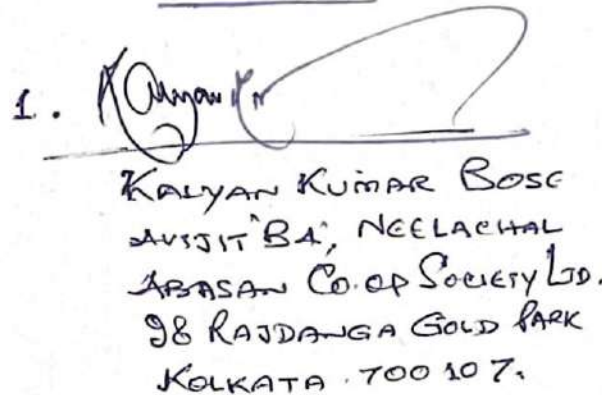 1. Kalyan Kr
KALYAN KUMAR BOSE
AVIJIT 'B4', NEELACHAL
ABASAN CO.OP SOCIETY LTD.
98 RAJDANGA GOLD PARK
KOLKATA . 700 107.